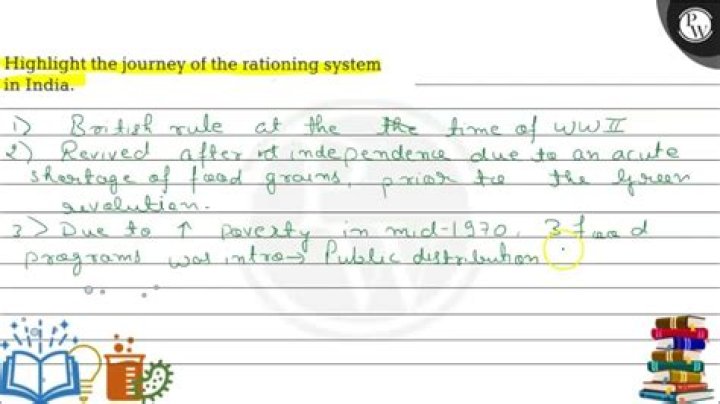 PW
Highlight the journey of the rationing system
in India.
1) British rule at the the time of WW II
2) Revived after independence due to an acute
shortage of food grains, prior to the Green
revolution.
3> Due to ↑ poverty in mid-1970, 3 food
programs was intro→ Public distribution